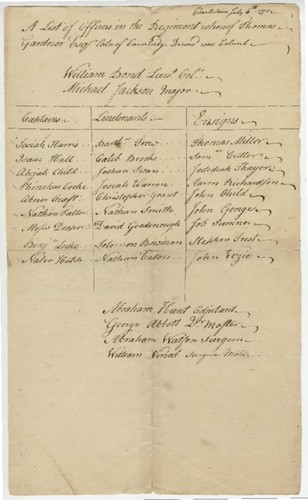 A List of Officers in the Regiment whereof Thomas
Gardner Esqr late of Cambridge was Colonel
William Bond Lieut Colo
Michael Jackson Major
Captains Lieutenants Ensigns
Josiah Harris Barthw Trow Thomas Miller
Isaac Hall Caleb Brooks Saml Cutler
Abijah Child Joshua Swan Jedidiah Thayer
Phinehas Cooke Josiah Warren Aaron Richardson
Abner Craft Christopher Grant John Child
Nathan Fuller Nathan Smith John George
Moses Draper David Goodenough Job Sumner
Benjn Locke Solomon Bowman Stephen Frost
Naler Hatch Nathaniel Eaton John Vezie
Abraham Hunt Adjutant
George Abbott Qr Master
Abraham Watson Surgeon
William Vinal Surgeon Mate